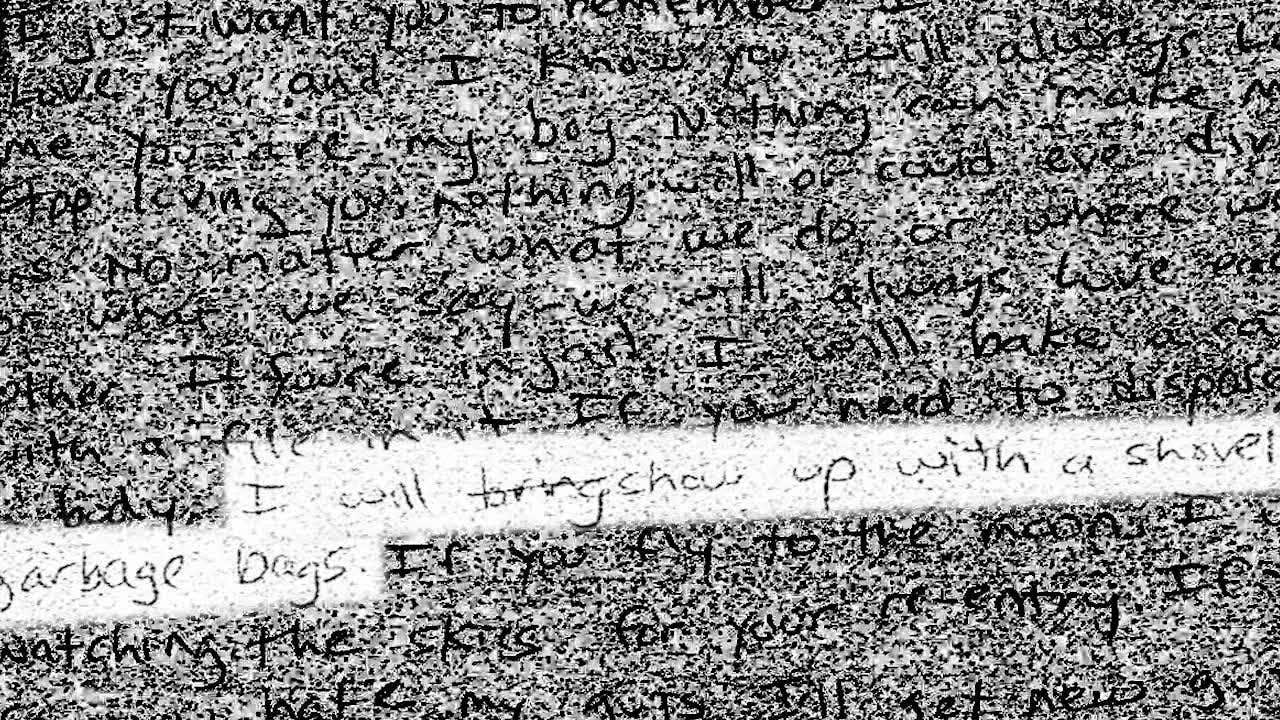 I just want you to remember I
Love you, and I know you will always Lo
me You are my boy. Nothing can make m
stop loving you, Nothing will or could eve div
us. NO matter what we do, or where we
or what we say - we will always love eac
other. If you're in jail I will bake a ca
with a file in it. If you need to dispose
body. I will bring show up with a shovel
garbage bags. If you fly to the moon, I
watching the skies for your re-entry. If
hate my guts I'll get new gu